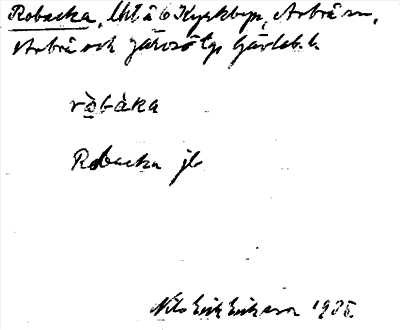 Robacka, lht å 6 Kyrkbyn, Arbrå sn,
Arbrå och Järvsö tg Gävleb. l.
rò̱bàka
Robacka jb
Nils Erik Eriksson 1935.